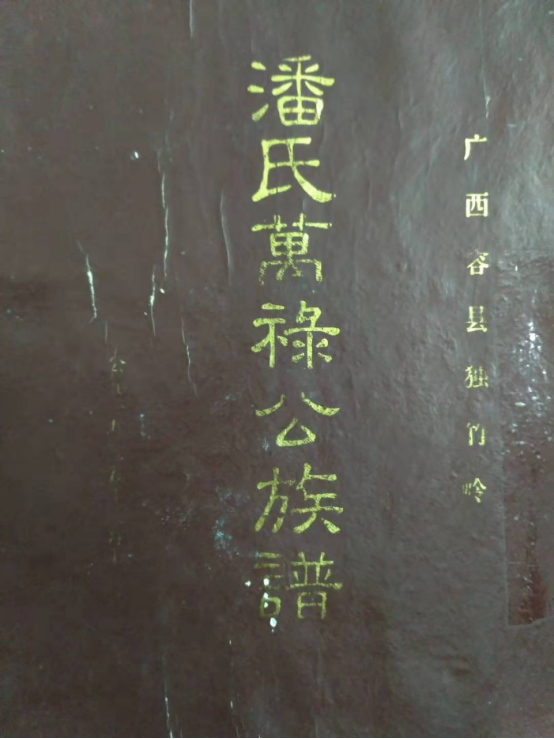 广西容县独竹岭
潘氏萬祿公族譜